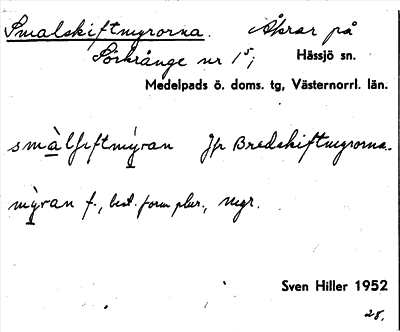 Smalskiftmyrorna. Åkrar på
Sörkrånge nr 1⁵; Hässjö sn.
Medelpads ö. doms. tg, Västernorrl. län.
smàlʃiftmỳran Jfr Bredskiftmyrorna.
mỳran f., best. form plur., myr.
Sven Hiller 1952
28.